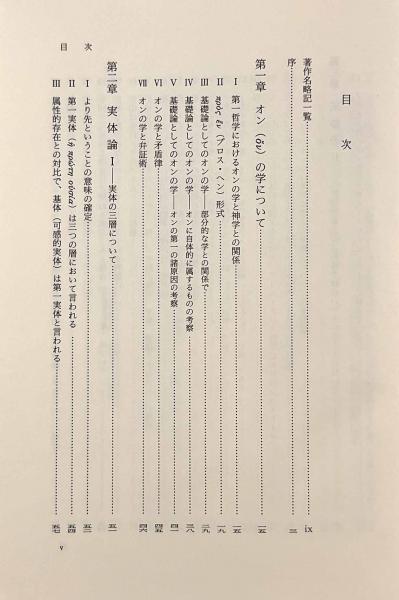 目次
著作名略記一覧 ix
序 三
第一章 オン(ὄν)の学について 一五
Ⅰ 第一哲学におけるオンの学と神学との関係 一五
Ⅱ πρὸς ἕν(プロス・ヘン)形式 一九
Ⅲ 基礎論としてのオンの学——部分的な学との関係で 二九
Ⅳ 基礎論としてのオンの学——オンに自体的に属するものの考察 三八
Ⅴ 基礎論としてのオンの学——オンの第一の諸原因の考察 四一
Ⅵ オンの学と矛盾律 四五
Ⅶ オンの学と弁証術 四六
第二章 実体論Ⅰ——実体の三層について 五一
Ⅰ より先ということの意味の確定 五二
Ⅱ 第一実体(ἡ πρώτη οὐσία)は三つの層において言われる 五四
Ⅲ 属性的存在との対比で、基体(可感的実体)は第一実体と言われる 五七
目次
v